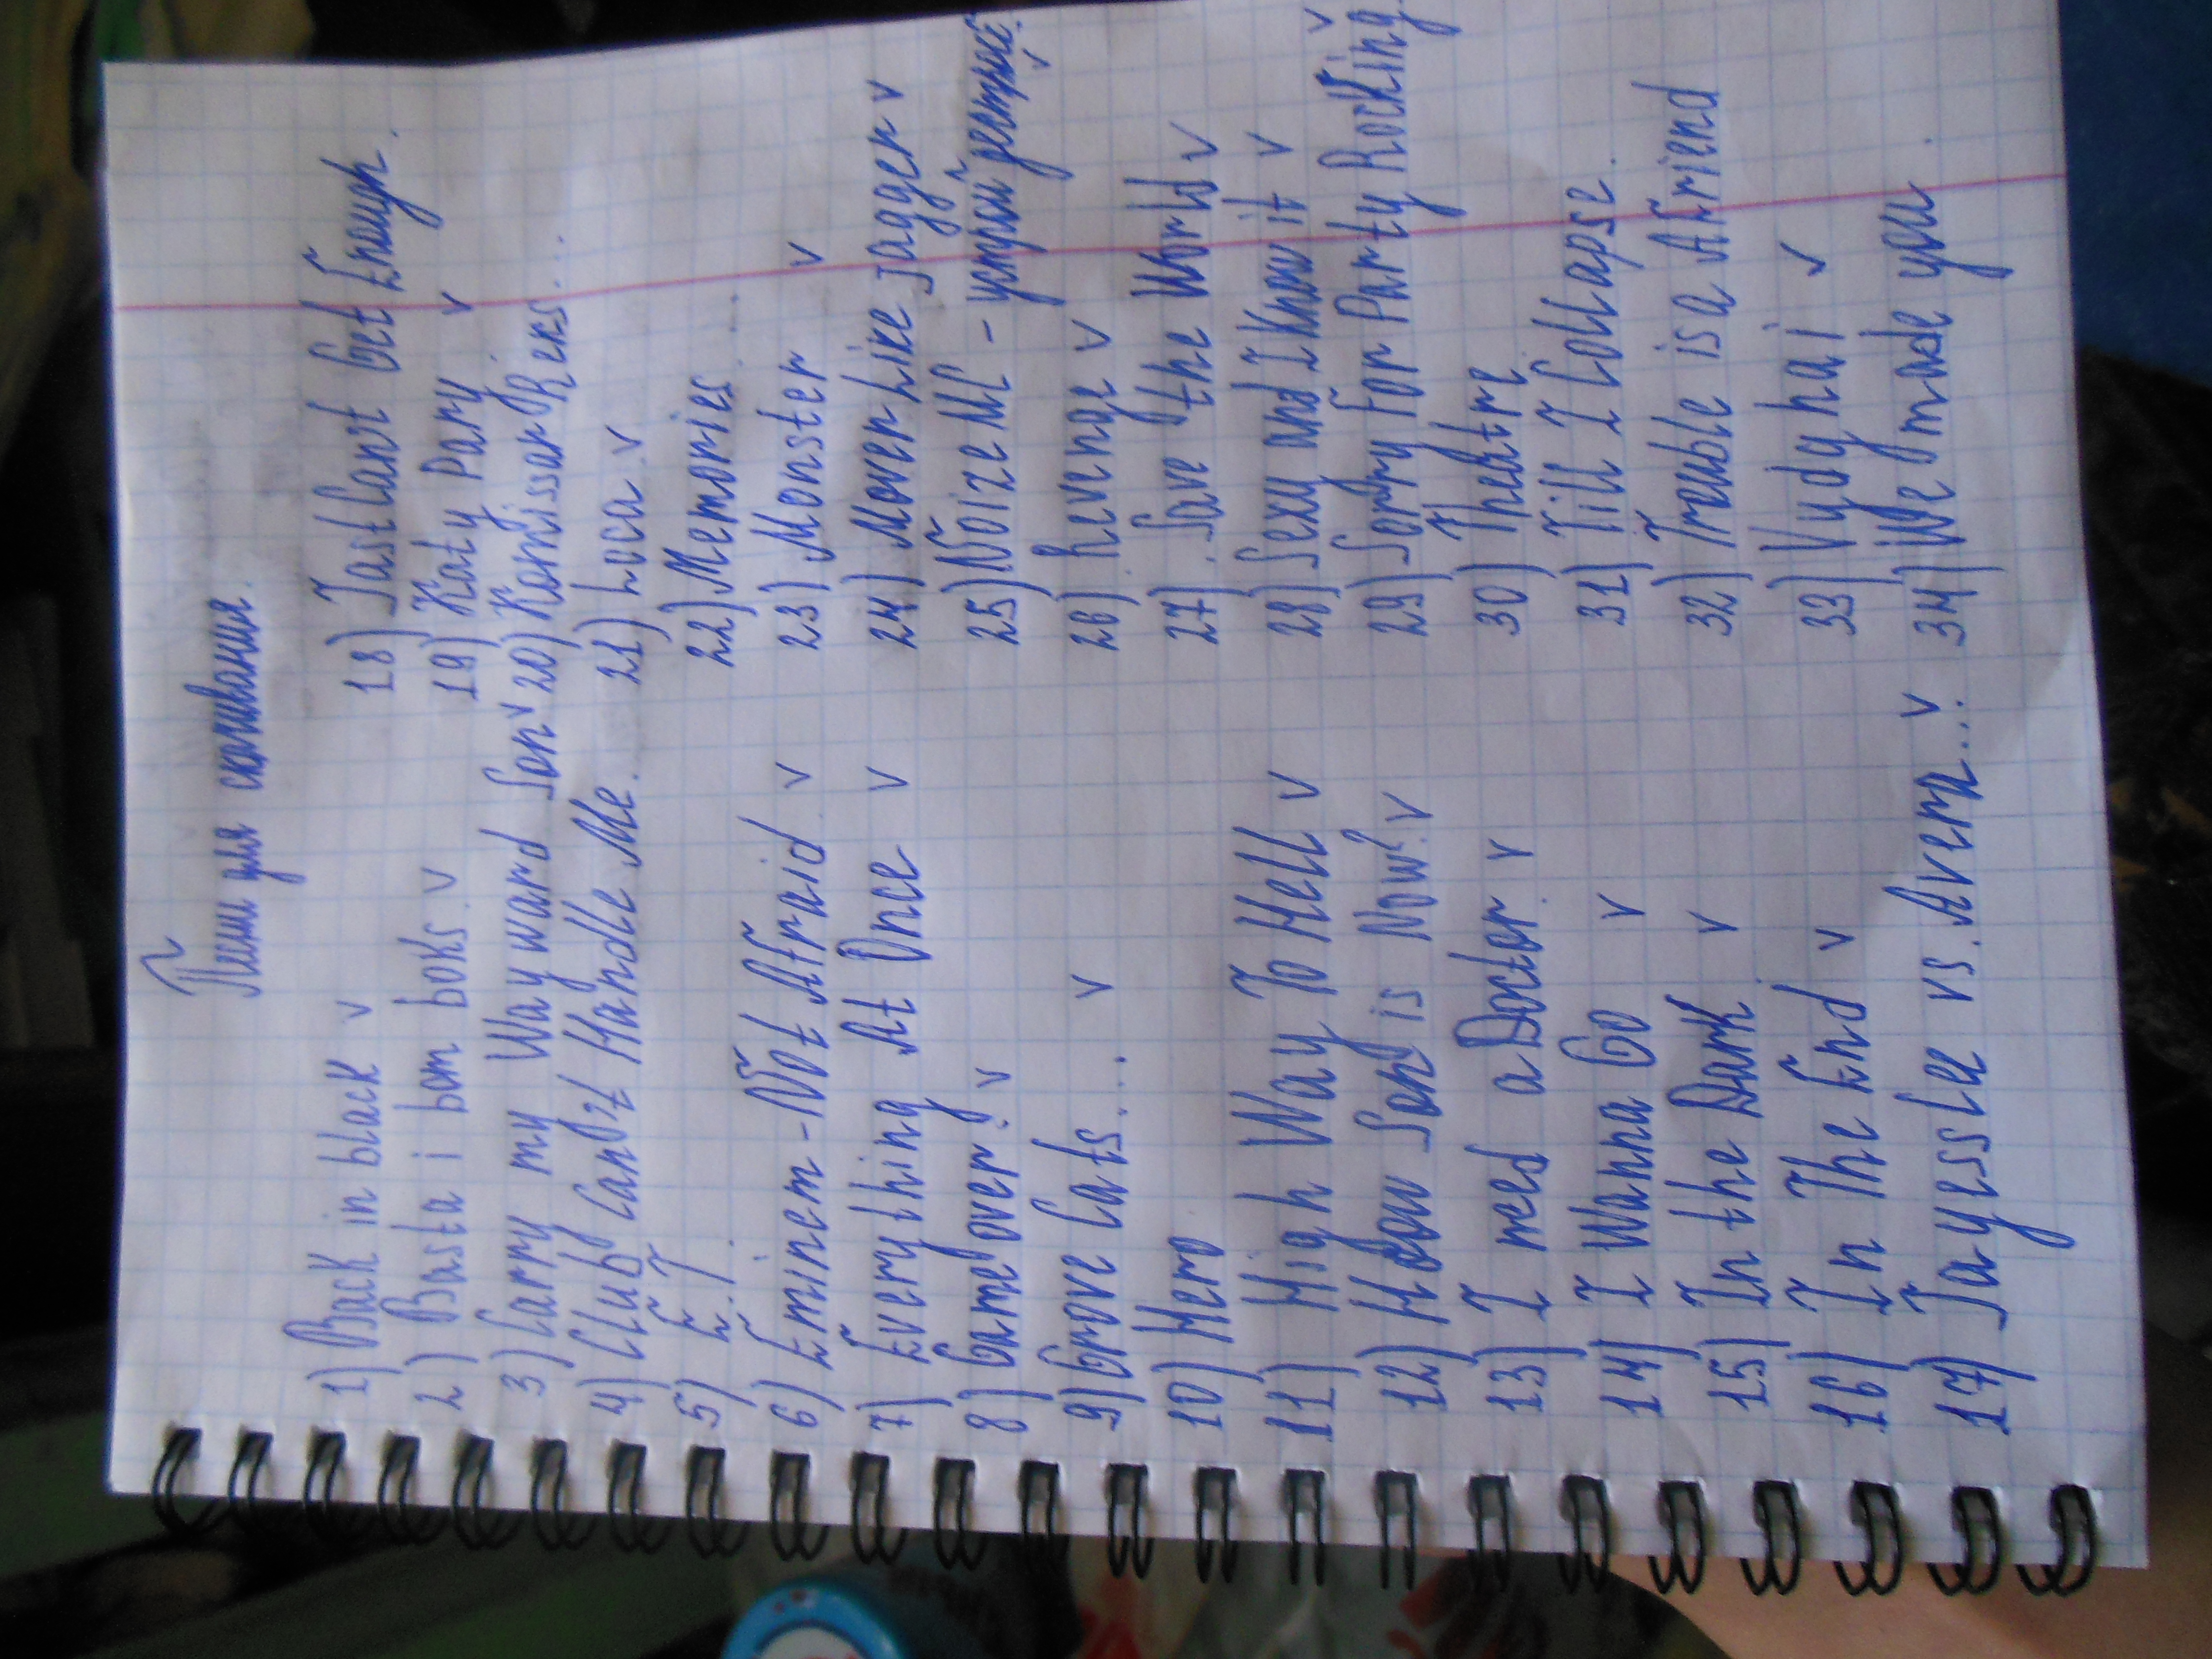 Песни для скачивания.
1) Back in black v
2) Basta i bom boks. v
3) Carry my Way ward Son v
4) Club Can0t Handle Me.
5) E.T.
6) Eminem - Not Afraid v
7) Everything At Once v
8) Game over! v
9) Grove Cats... v
10) Hero
11) High Way To Hell v
12) How Song is Now? v
13) I need a Doctor. v
14) I Wanna Go v
15) In the Dark v
16) In The End v
17) Jayesslee vs. Avera... v
18) Jast Cant Get Enough.
19) Katy Pary v
20) Komissar Reks...
21) Loca v
22) Memories...
23) Monster v
24) Mover Like Jagger v
25) Noize MC - устрой дестрой! v
26) Revenge v
27) Save the World v
28) Sexy and I Know it v
29) Sorry For Party Rocking. v
30) Theatre
31) Till I Collapse.
32) Trouble is a Afriend
33) Vydyhai v
34) We made you.